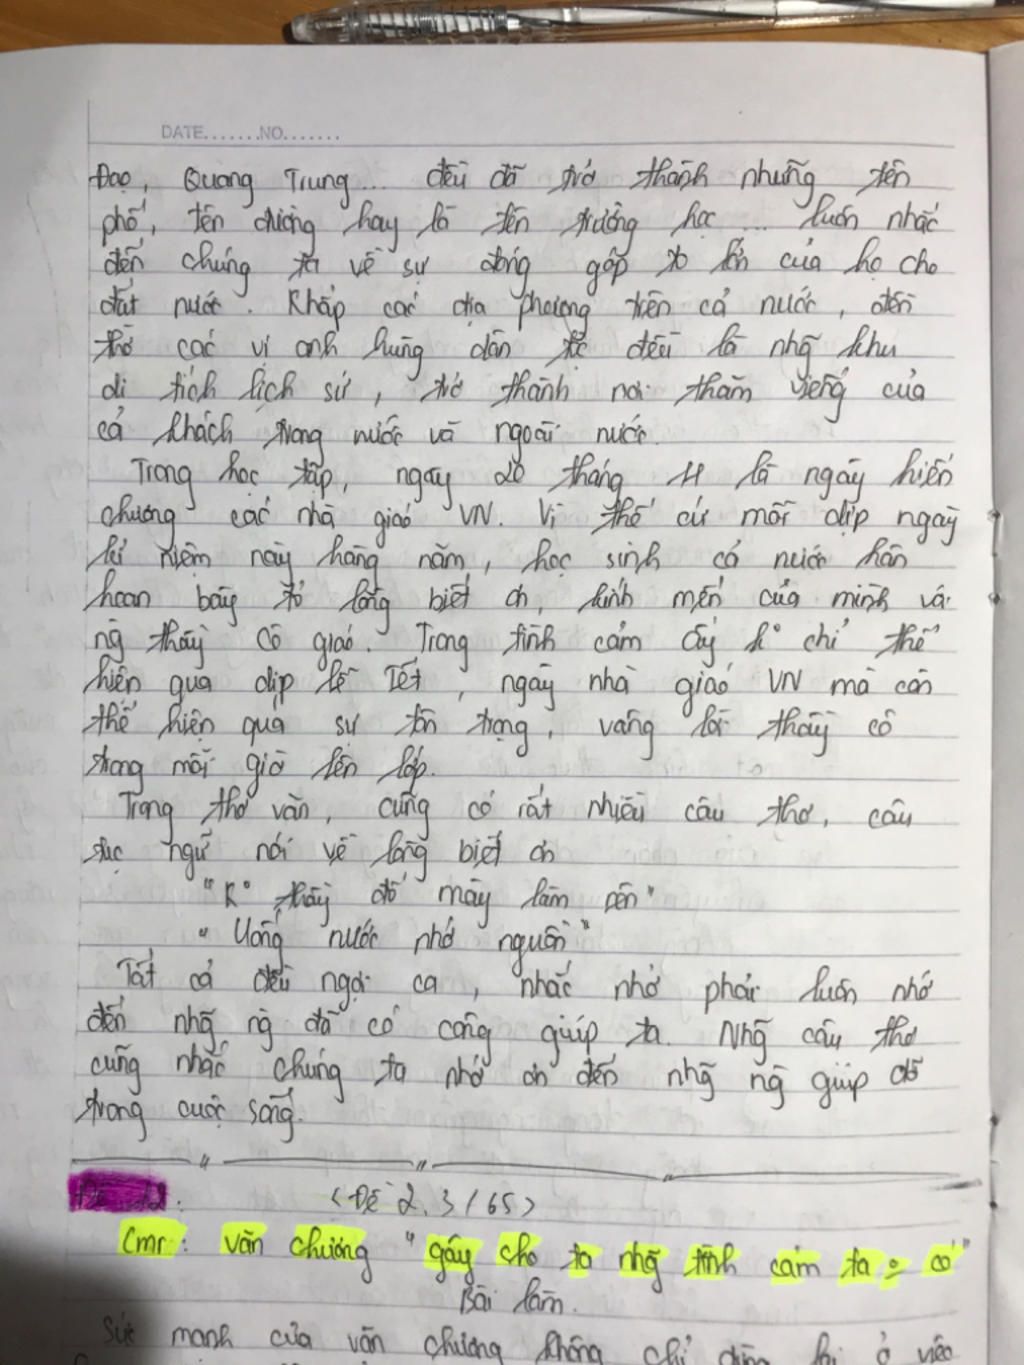 DATE.......NO.......
Đạo, Quang Trung... đều đã trở thành những tên
phố, tên đường hay là tên trường học ... luôn nhắc
đến chúng ta về sự đóng góp to lớn của họ cho
đất nước. Khắp các địa phương trên cả nước, đền
thờ các vị anh hùng dân tộc đều là nhữg khu
di tích lịch sử, trở thành nơi thăm viếng của
cả khách trong nước và ngoài nước.
Trong học tập, ngày 20 tháng 11 là ngày hiến
chương các nhà giáo VN. Vì thế cứ mỗi dịp ngày
kỉ niệm này hàng năm, học sinh cả nước hân
hoan bày tỏ lòng biết ơn, kính mến của mình và
ng thầy cô giáo. Trong tình cảm ấy k° chỉ thể
hiện qua dịp lễ Tết, ngày nhà giáo VN mà còn
thể hiện qua sự tôn trọng, vâng lời thầy cô
trong mỗi giờ lên lớp.
Trong thơ văn, cũng có rất nhiều câu thơ, câu
tục ngữ nói về lòng biết ơn
"K° thầy đố mày làm nên"
"Uống nước nhớ nguồn"
Tất cả đều ngợi ca, nhắc nhở phải luôn nhớ
đến nhữg ng đã có công giúp ta. Nhữg câu thơ
cũng nhắc chúng ta nhớ ơn đến nhữg ng giúp đỡ
trong cuộc sống.
Đề 12: <Đề 2, 3 / 65>
Cmr: văn chương "gây cho ta nhữg tình cảm ta có"
Bài làm.
Sức mạnh của văn chương không chỉ dừng lại ở việc